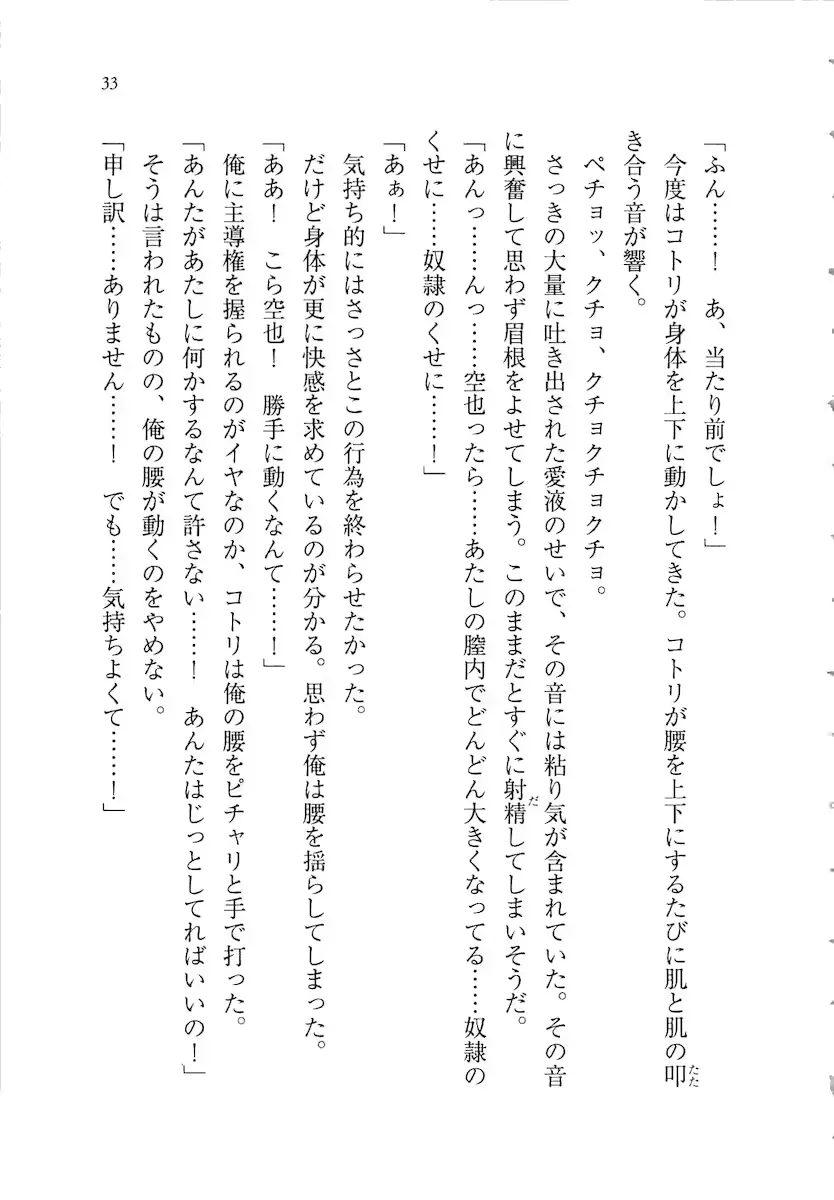 33
「ふん……！　あ、当たり前でしょ！」
今度はコトリが身体を上下に動かしてきた。コトリが腰を上下にするたびに肌と肌の叩
き合う音が響く。
ペチョッ、クチョ、クチョクチョクチョ。
さっきの大量に吐き出された愛液のせいで、その音には粘り気が含まれていた。その音
に興奮して思わず眉根をよせてしまう。このままだとすぐに射精してしまいそうだ。
「あんっ……んっ……空也ったら……あたしの膣内でどんどん大きくなってる……奴隷の
くせに……奴隷のくせに……！」
「あぁ！」
気持ち的にはさっさとこの行為を終わらせたかった。
だけど身体が更に快感を求めているのが分かる。思わず俺は腰を揺らしてしまった。
「ああ！　こら空也！　勝手に動くなんて……！」
俺に主導権を握られるのがイヤなのか、コトリは俺の腰をピチャリと手で打った。
「あんたがあたしに何かするなんて許さない……！　あんたはじっとしてればいいの！」
そうは言われたものの、俺の腰が動くのをやめない。
「申し訳……ありません……！　でも……気持ちよくて……！」